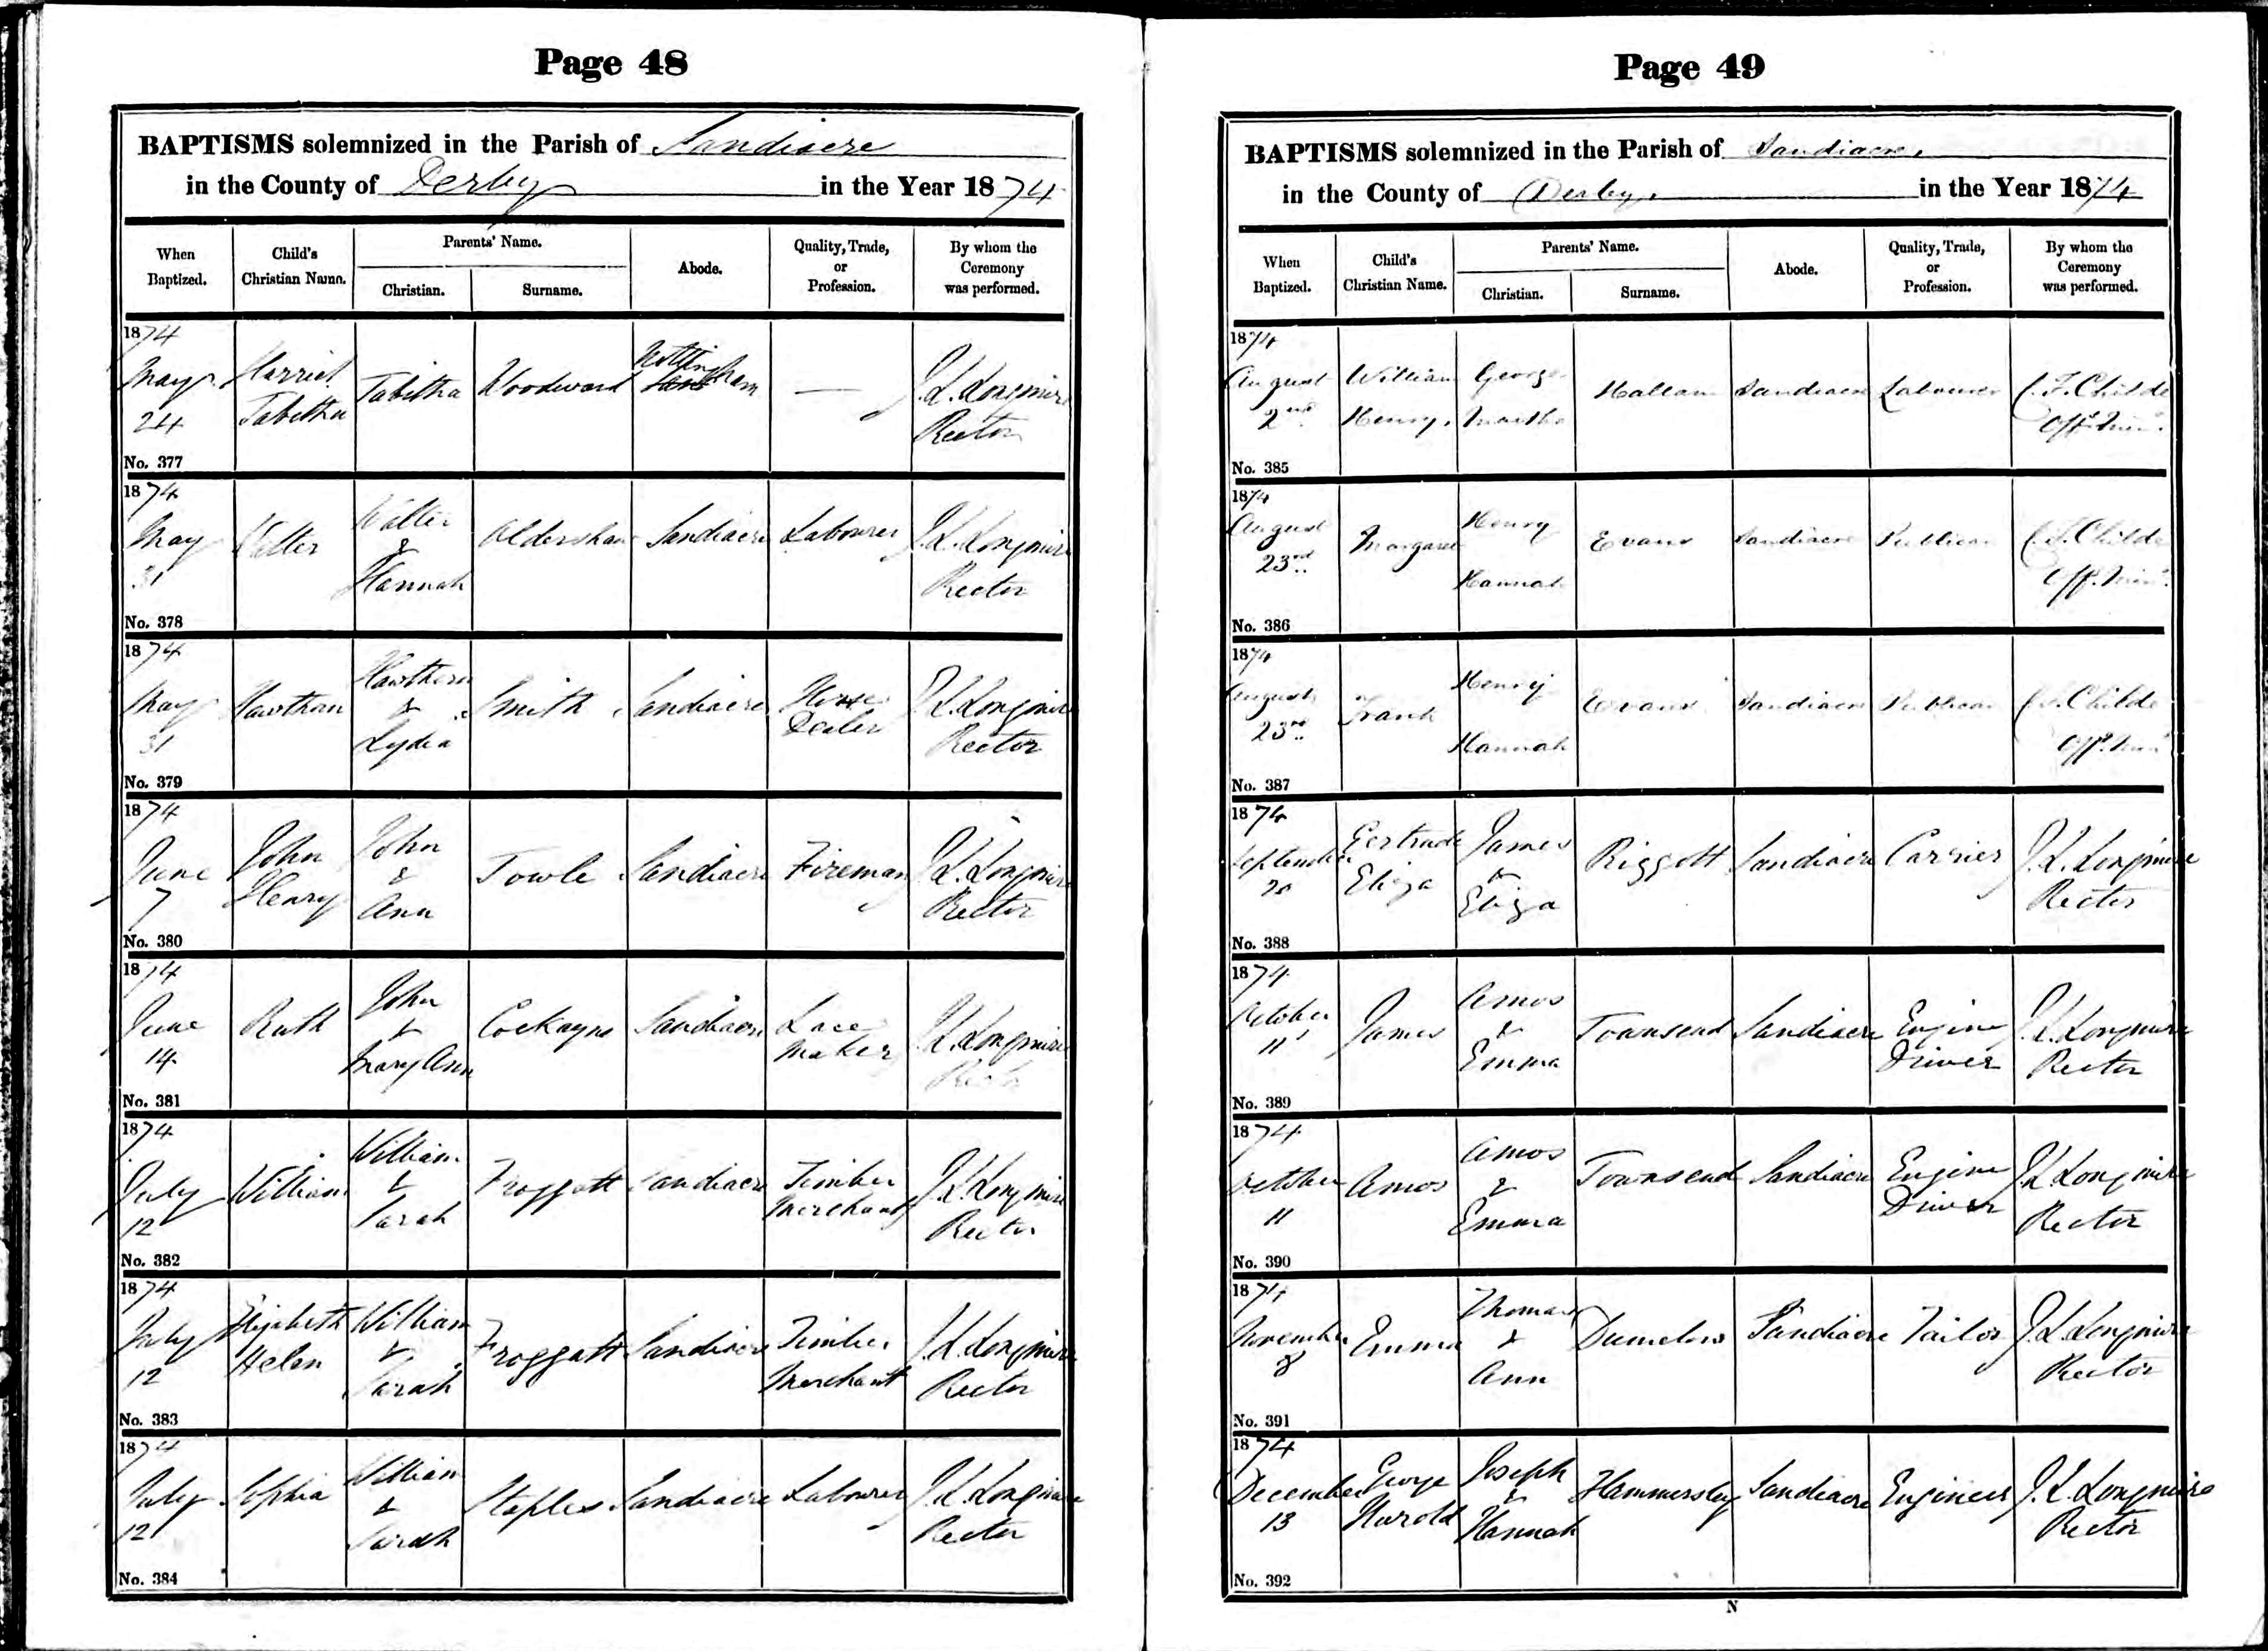 Page 48
BAPTISMS solemnized in the Parish of Sandiacre
in the County of Derby in the Year 1874
When Baptized.
Child's Christian Name.
Parents' Name.
Christian.
Surname.
Abode.
Quality, Trade, or Profession.
By whom the Ceremony was performed.
1874
May 24
Harriet Tabitha
Tabitha
Woodward
Nottingham
—
J.L. Longmire Rector
No. 377
1874
May 31
Walter
Walter & Hannah
Aldershaw
Sandiacre
Labourer
J.L. Longmire Rector
No. 378
1874
May 31
Hawthorn
Hawthorn & Lydia
Smith
Sandiacre
Horse Dealer
J.L. Longmire Rector
No. 379
1874
June 7
John Henry
John & Ann
Towle
Sandiacre
Fireman
J.L. Longmire Rector
No. 380
1874
June 14
Ruth
John & Mary Ann
Cockayne
Sandiacre
Lace Maker
J.L. Longmire Rector
No. 381
1874
July 12
William
William & Sarah
Froggatt
Sandiacre
Timber Merchant
J.L. Longmire Rector
No. 382
1874
July 12
Elizabeth Helen
William & Sarah
Froggatt
Sandiacre
Timber Merchant
J.L. Longmire Rector
No. 383
1874
July 12
Sophia
William & Sarah
Staples
Sandiacre
Labourer
J.L. Longmire Rector
No. 384
Page 49
BAPTISMS solemnized in the Parish of Sandiacre.
in the County of Derby. in the Year 1874
When Baptized.
Child's Christian Name.
Parents' Name.
Christian.
Surname.
Abode.
Quality, Trade, or Profession.
By whom the Ceremony was performed.
1874
August 2nd
William Henry.
George Martha
Hallam
Sandiacre
Labourer
C.F. Childe Off. Min.
No. 385
1874
August 23rd
Margaret
Henry Hannah
Evans
Sandiacre
Publican
C.F. Childe Off. Min.
No. 386
1874
August 23rd
Frank
Henry Hannah
Evans
Sandiacre
Publican
C.F. Childe Off. Min.
No. 387
1874
September 20
Gertrude Eliza
James & Eliza
Riggott
Sandiacre
Carrier
J.L. Longmire Rector
No. 388
1874
October 11
James
Amos & Emma
Townsend
Sandiacre
Engine Driver
J.L. Longmire Rector
No. 389
1874
October 11
Amos
Amos & Emma
Townsend
Sandiacre
Engine Driver
J.L. Longmire Rector
No. 390
1874
November 8
Emma
Thomas & Ann
Dumelow
Sandiacre
Tailor
J.L. Longmire Rector
No. 391
1874
December 13
George Harold
Joseph & Hannah
Hammersley
Sandiacre
Engineer
J.L. Longmire Rector
No. 392
N